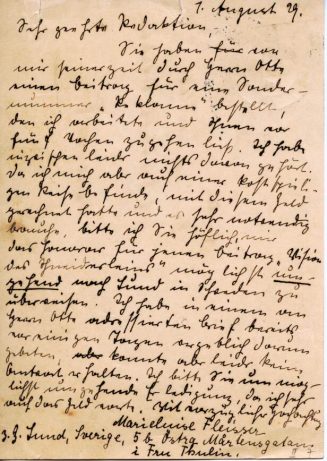 1. August 29.
Sehr geehrte Redaktion,
Sie haben für von
mir seinerzeit durch Herrn Otte
einen Beitrag für eine Sonder-
nummer „Reklame“ bestellt,
den ich arbeitete und Ihnen vor
fünf Wochen zugehen liess. Ich habe
inzwischen leider nichts davon gehört.
Da ich mich aber auf einer kostspieli-
gen Reise befinde, mit diesem Geld
gerechnet hatte und es sehr notwendig
brauche, bitte ich Sie höflich, mir
das Honorar für jenen Beitrag „Vision
des Schneiderleins“ möglichst um-
gehend nach Lund in Schweden zu
überweisen. Ich habe in einem an
Herrn Otte adressierten Brief bereits
vor einigen Tagen vergeblich darum
gebeten, aber konnte aber leider keine
Antwort erhalten. Ich bitte Sie um mög-
lichst umgehende Erledigung, da ich sehr
auf das Geld warte. Mit vorzüglicher Hochachtg
Marieluise Fleisser
z. Z. Lund, Sverige, 5 b Östra Mårtensgatan
i Fru Thulin.